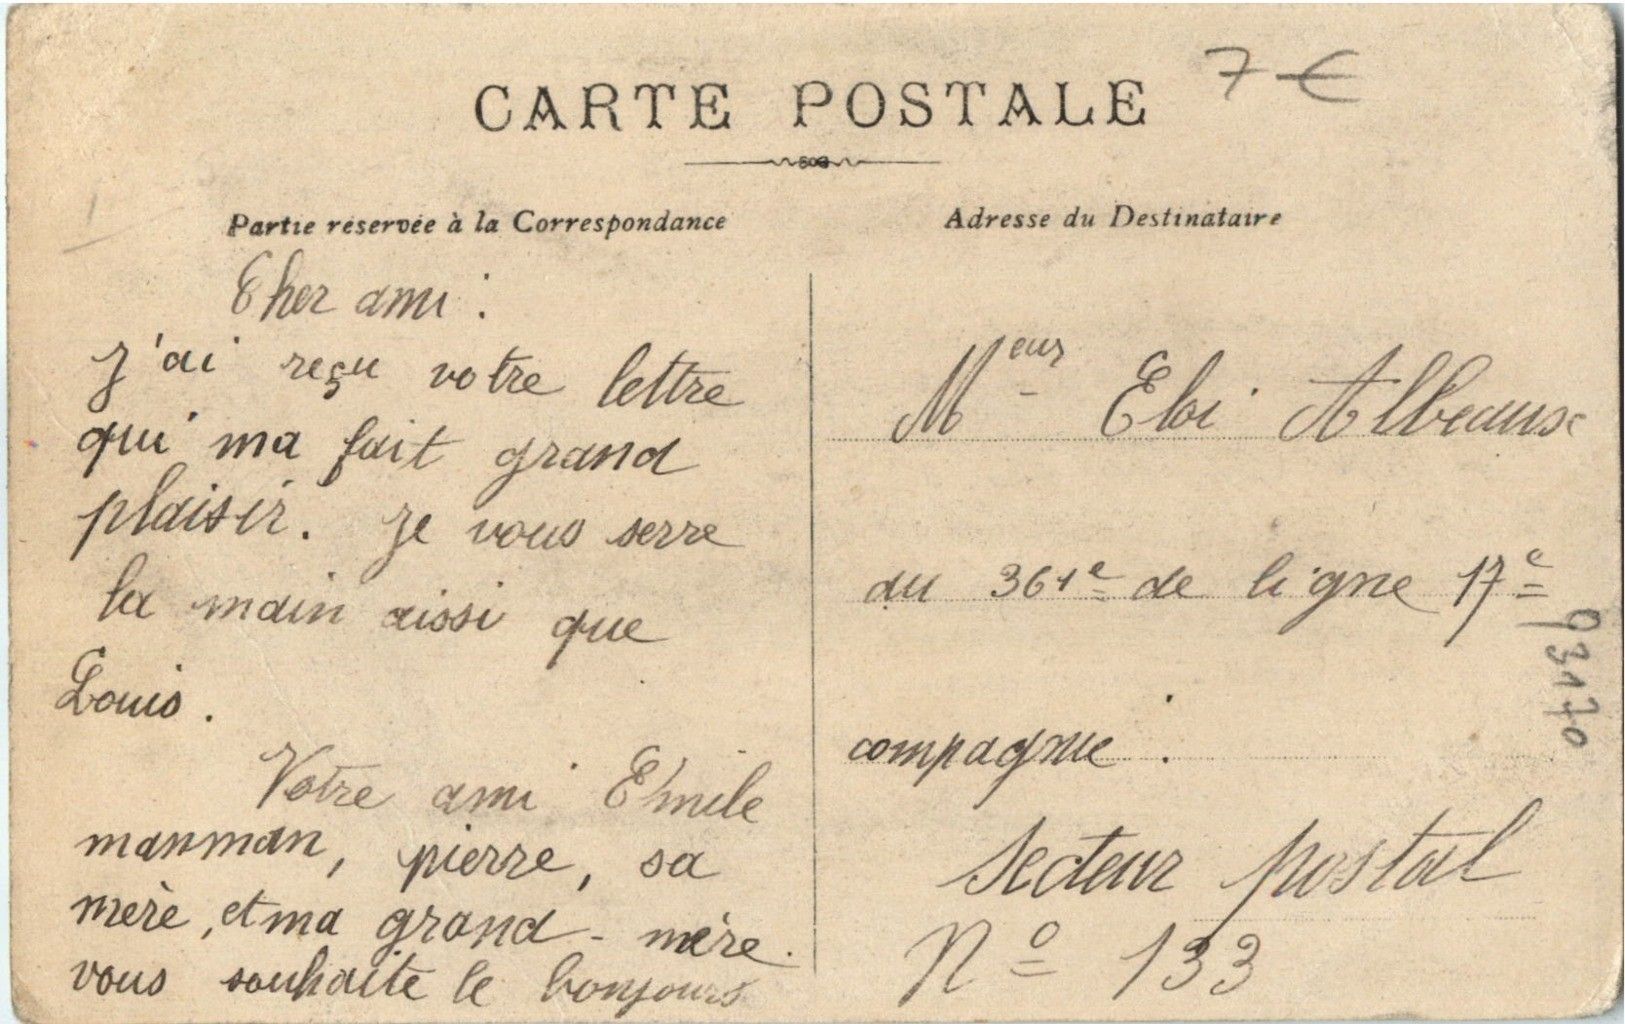 CARTE POSTALE
7 €
Partie réservée à la Correspondance
Cher ami :
J'ai reçu votre lettre
qui ma fait grand
plaisir. Je vous serre
la main aissi que
Louis.
Votre ami Emile
manman, pierre, sa
mère, et ma grand-mère.
vous souhaite le bonjours
Adresse du Destinataire
Meur Eloi Albeaux
du 361e de ligne 17e
compagnie.
Secteur postal
No 133
93170